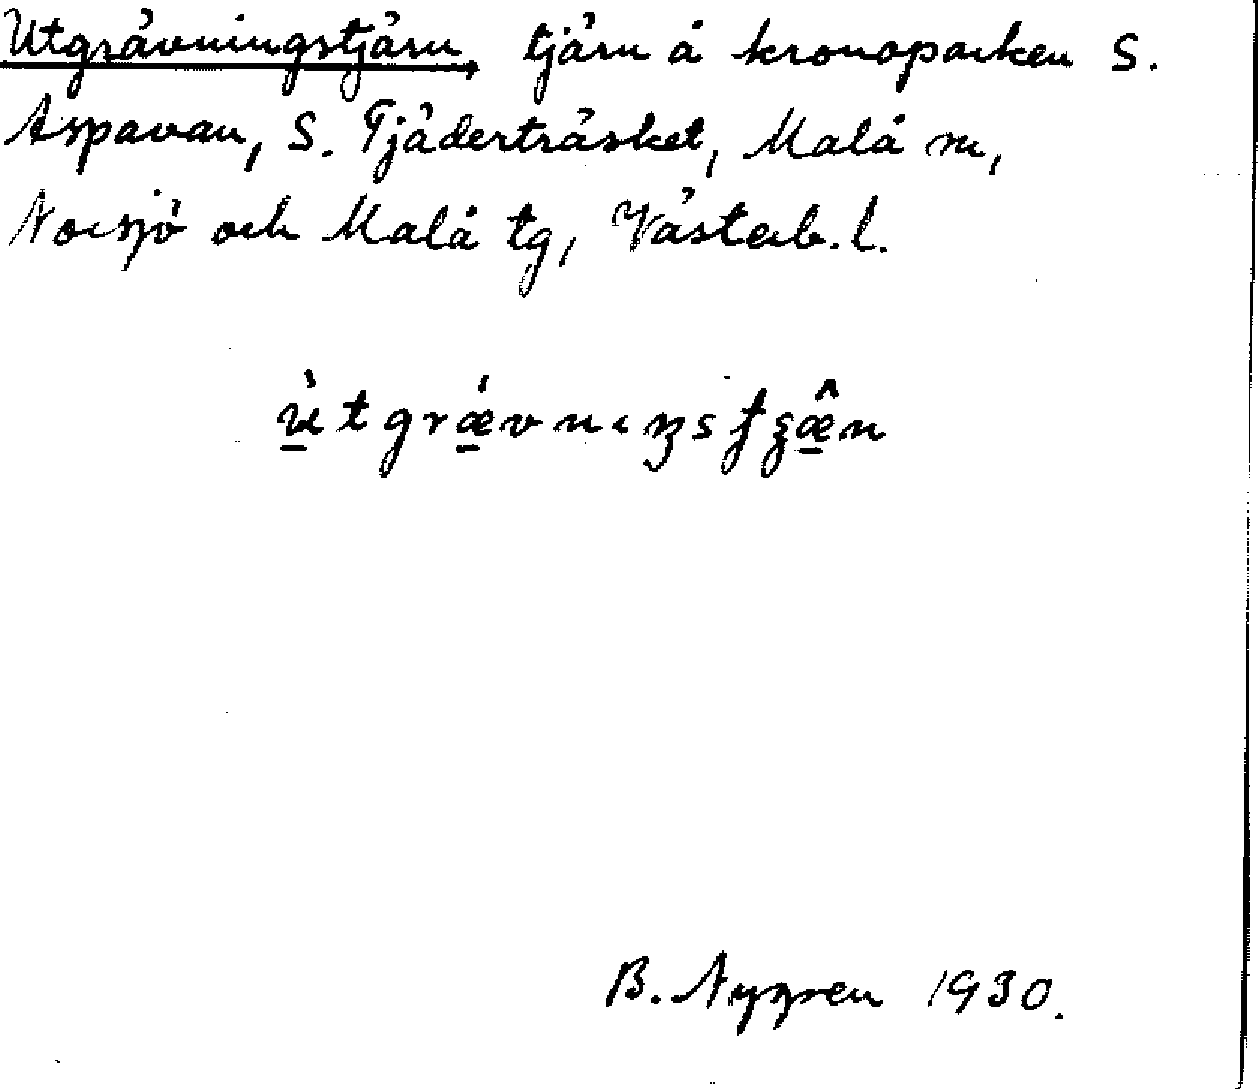 Utgrävningstjärn, tjärn å kronoparken S.
Aspavan, S. Tjäderträsket, Malå sn,
Norsjö och Malå tg, Västerb. l.
B. Nygren 1930.